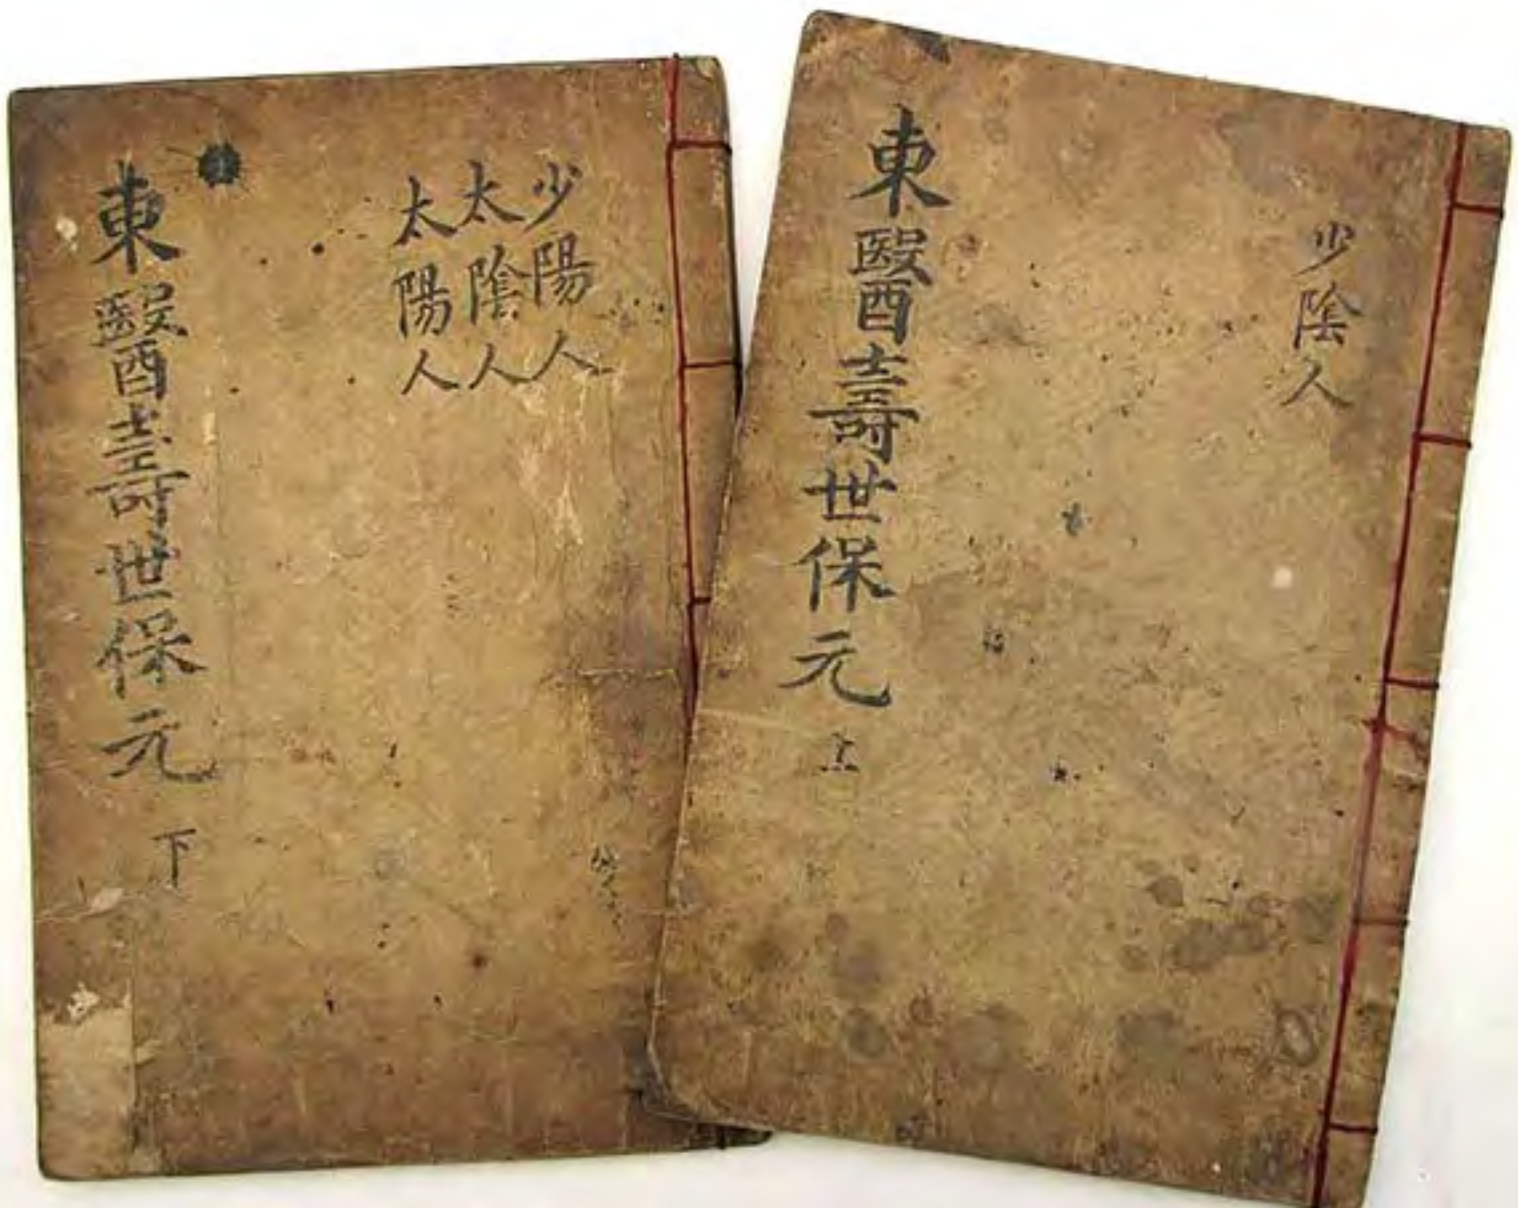 少陽人
太陰人
太陽人
東醫壽世保元 下
少陰人
東醫壽世保元 上